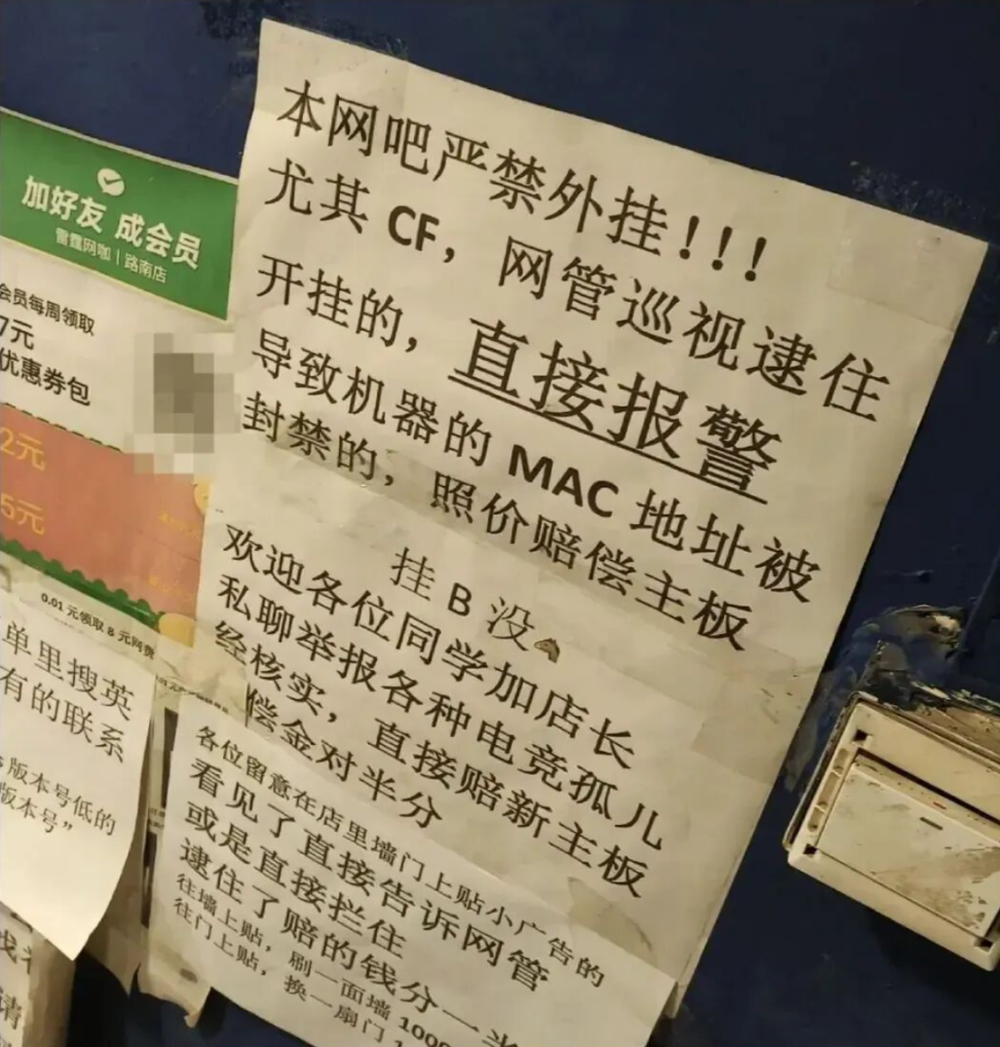 本网吧严禁外挂!!!
尤其 CF，网管巡视逮住
开挂的，直接报警
导致机器的 MAC 地址被
封禁的，照价赔偿主板
挂 B 没
欢迎各位同学加店长
私聊举报各种电竞孤儿
经核实，直接赔新主板
偿金对半分
各位留意在店里墙门上贴小广告的
看见了直接告诉网管
或是直接拦住
逮住了赔的钱分一半
往墙上贴，刷一面墙 1000
往门上贴，换一扇门 1
加好友 成会员
雷霆网咖 | 路南店
会员每周领取
7元
优惠券包
2元
5元
0.01 元领取 8 元网费
单里搜英
有的联系
版本号低的
版本号”
请